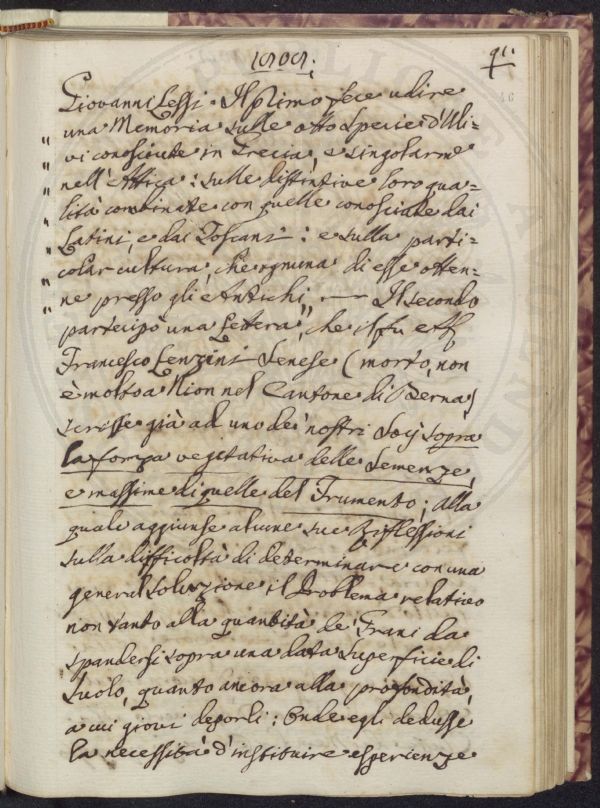 91.
Giovanni Lessi. Il primo fece udire
una Memoria sulle otto Specie d'Uli=
" vi conosciute in Grecia, e singolarme
" nell'Attica: sulle distintive loro qua=
" lità combinate con quelle conosciute dai
" Latini, e dai Toscani: e sulla parti=
" colar cultura, che ognuna di esse otten=
" ne presso gli Antichi. — Il secondo
partecipò una Lettera, che il fu
Francesco Lenzini Senese (morto, non
è molto a Nion nel Cantone di Berna)
scrisse già ad uno de' nostri Socj sopra
la forza vegetativa delle Semenze,
e massime di quelle del Frumento; alla
quale aggiunse alcune sue Riflessioni
sulla difficoltà di determinare con una
general soluzione il Problema relativo
non tanto alla quantità de' Grani da
spandersi sopra una data Superficie di
Suolo, quanto ancora alla profondità,
a cui giovi deporli; Onde egli dedusse
la necessità d'instituire esperienze